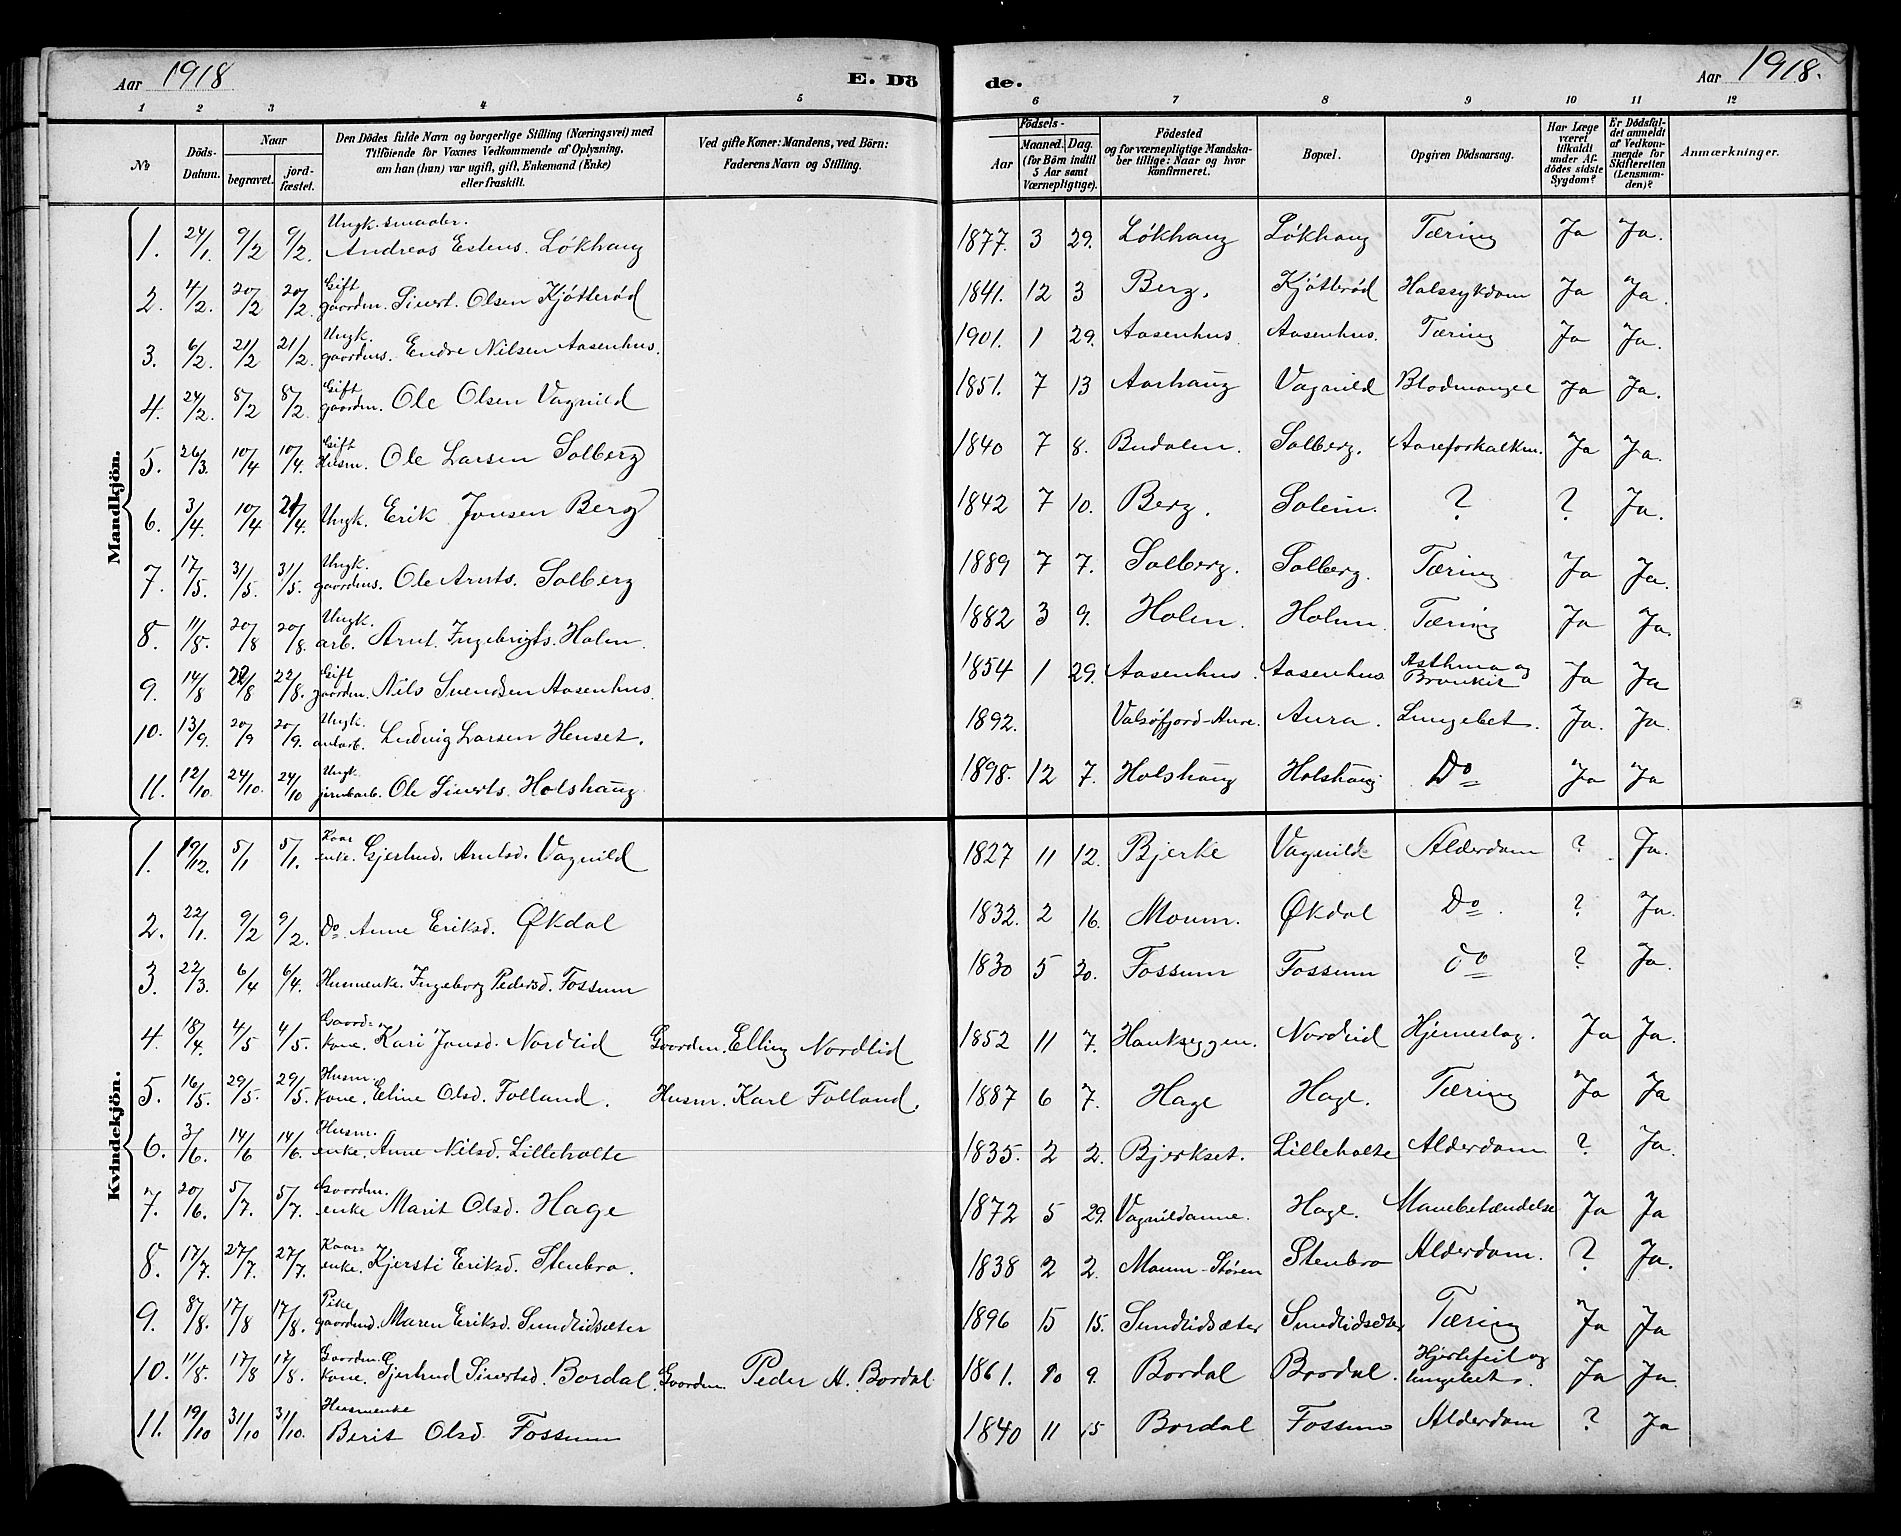 Aar 1918 E. Dö de. Aar 1918.
1 2 3 4 5 6 7 8 9 10 11 12
№ Döds-Datum. Naar begravet. jord-fæstet. Den Dödes fulde Navn og borgerlige Stilling (Næringsvei) med Tilföiende for Voxnes Vedkommende af Oplysning, om han (hun) var ugift, gift, Enkemand (Enke) eller fraskilt. Ved gifte Koner: Mandens, ved Börn: Faderens Navn og Stilling. Födsels- Aar Maaned. Dag. (for Börn indtil 5 Aar samt Værnepligtige). Födested og for værnepligtige Mandskaber tillige: Naar og hvor konfirmeret. Bopæl. Opgiven Dödsaarsag. Har Læge været tilkaldt under Afdödes sidste Sygdom? Er Dödsfaldet anmeldt af Vedkommende for Skifteretten (Lensmanden)? Anmærkninger.
Mandkjön.
1. 24/1. 9/2 9/2. Ungk. smaabr. Andreas Estens. Løkhaug 1877. 3 29. Løkhaug Løkhaug Tæring Ja Ja.
2. 4/2. 20/2 20/2. Gift gaardm. Sivert Olsen Kjøtterød 1841. 12 3 Berg. Kjøtterød Halssykdom Ja Ja.
3. 6/2. 21/2 21/2. Ungk. gaardms. Endre Nilsen Aasenhus. 1901. 1 29. Aasenhus. Aasenhus. Tæring Ja Ja.
4. 24/2. 8/2 8/2. Gift gaardm. Ole Olsen Vagnild 1851. 7 13 Aarhaug Vagnild Blodmangel Ja Ja.
5. 26/3. 10/4 10/4. Gift Husm. Ole Larsen Solberg 1840 7 8. Budalen. Solberg. Aareforkalkn. Ja Ja.
6. 3/4. 10/4 21/4. Ungk. Erik Jonsen Berg 1842 7 10. Berg. Solem. ? ? Ja.
7. 17/5. 31/5. 31/5. Ungk. gaardms. Ole Arnts. Solberg 1889 7 7. Solberg. Solberg. Tæring Ja Ja.
8. 11/8. 20/8 20/8. Ungk. arb. Arnt Ingebrigts. Holm. 1882 3 9. Holm. Holm. Tæring Ja Ja.
9. 14/8 22/8 22/8. Gift gaardm. Nils Svendsen Aasenhus. 1854 1 29. Aasenhus. Aasenhus Asthma og Bronkit Ja Ja
10. 13/9. 20/9 20/9. Ungk. anlarb. Ludvig Larsen Henset. 1892. Valsøfjord-Aure. Aura. Lungebet. Ja. Ja.
11. 12/10. 24/10. 24/10 Ungk. jernbarb. Ole Siverts. Holshaug 1898. 12 7. Holshaug Holshaug Do Ja Ja
Kvindekjön.
1. 19/12. 5/1 5/1. Kaarenke. Gjertrud Arntsd. Vagnild 1827 11 12. Bjerke Vagnild Alderdom ? Ja.
2. 22/1. 9/2 9/2. Do. Anne Eriksd. Økdal 1832. 2 16. Moum. Økdal Do. ? Ja.
3. 22/3. 6/4 6/4. Husmenke. Ingeborg Pedersd. Fossum 1830 5 20. Fossum Fossum do ? Ja.
4. 18/4. 4/5 4/5. Gaardkone. Kari Jonsd. Nordlid Gaardm. Elling Nordlid 1852 11 7. Haukseggen. Nordlid Hjerneslag. Ja Ja.
5. 16/5. 29/5. 29/5. Husm. kone. Eline Olsd. Folland. Husm. Karl Folland. 1887 6 7. Hage Hage. Tæring Ja Ja
6. 3/6. 14/6 14/6. Husm. enke. Anne Nilsd. Lilleholte 1835. 2 2. Bjerkset. Lilleholte Alderdom ? Ja.
7. 20/6. 5/7. 5/7. Gaardm. enke Marit Olsd. Hage 1872 5 29. Vagnildanne. Hage. Mavebetændelse Ja Ja
8. 17/7. 27/7. 27/7. Kaarenke. Kjersti Eriksd. Stenbro. 1838 2 2. Moum-Støren Stenbro Alderdom. ? Ja.
9. 8/8. 17/8 17/8. Pike gaardmd. Maren Eriksd. Sundlidsæter 1896 5 15. Sundlidsæter Sundlidsæter Tæring Ja Ja
10. 11/8. 17/8 17/8. Gaardm. kone. Gjertrud Sivertsd. Bordal. Gaardm. Peder A. Bordal 1861. 10 9. Bordal Bordal. Hjertefeil og lungebet. Ja Ja.
11. 19/10 31/10 31/10. Husmenke Berit Olsd. Fossum 1840 11 15 Bordal Fossum Alderdom ? Ja